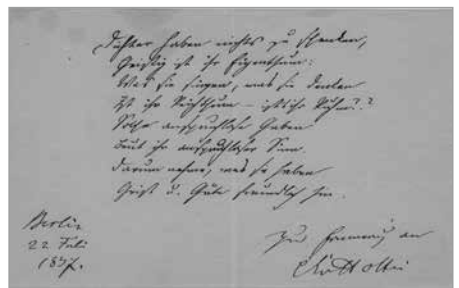 Dichter haben nichts zu schenken,
Geistig ist ihr Eigenthum:
Was sie singen, was sie denken
Ist ihr Reichthum – ists ihr Ruhm??
Solche anspruchlose Gaben
Beut ihr anspruchloser Sinn.
Darum nehme, was sie haben
Geist u. Güte freundlich hin.
Zur Erinnerung an
Berlin
22 Juli
1837.